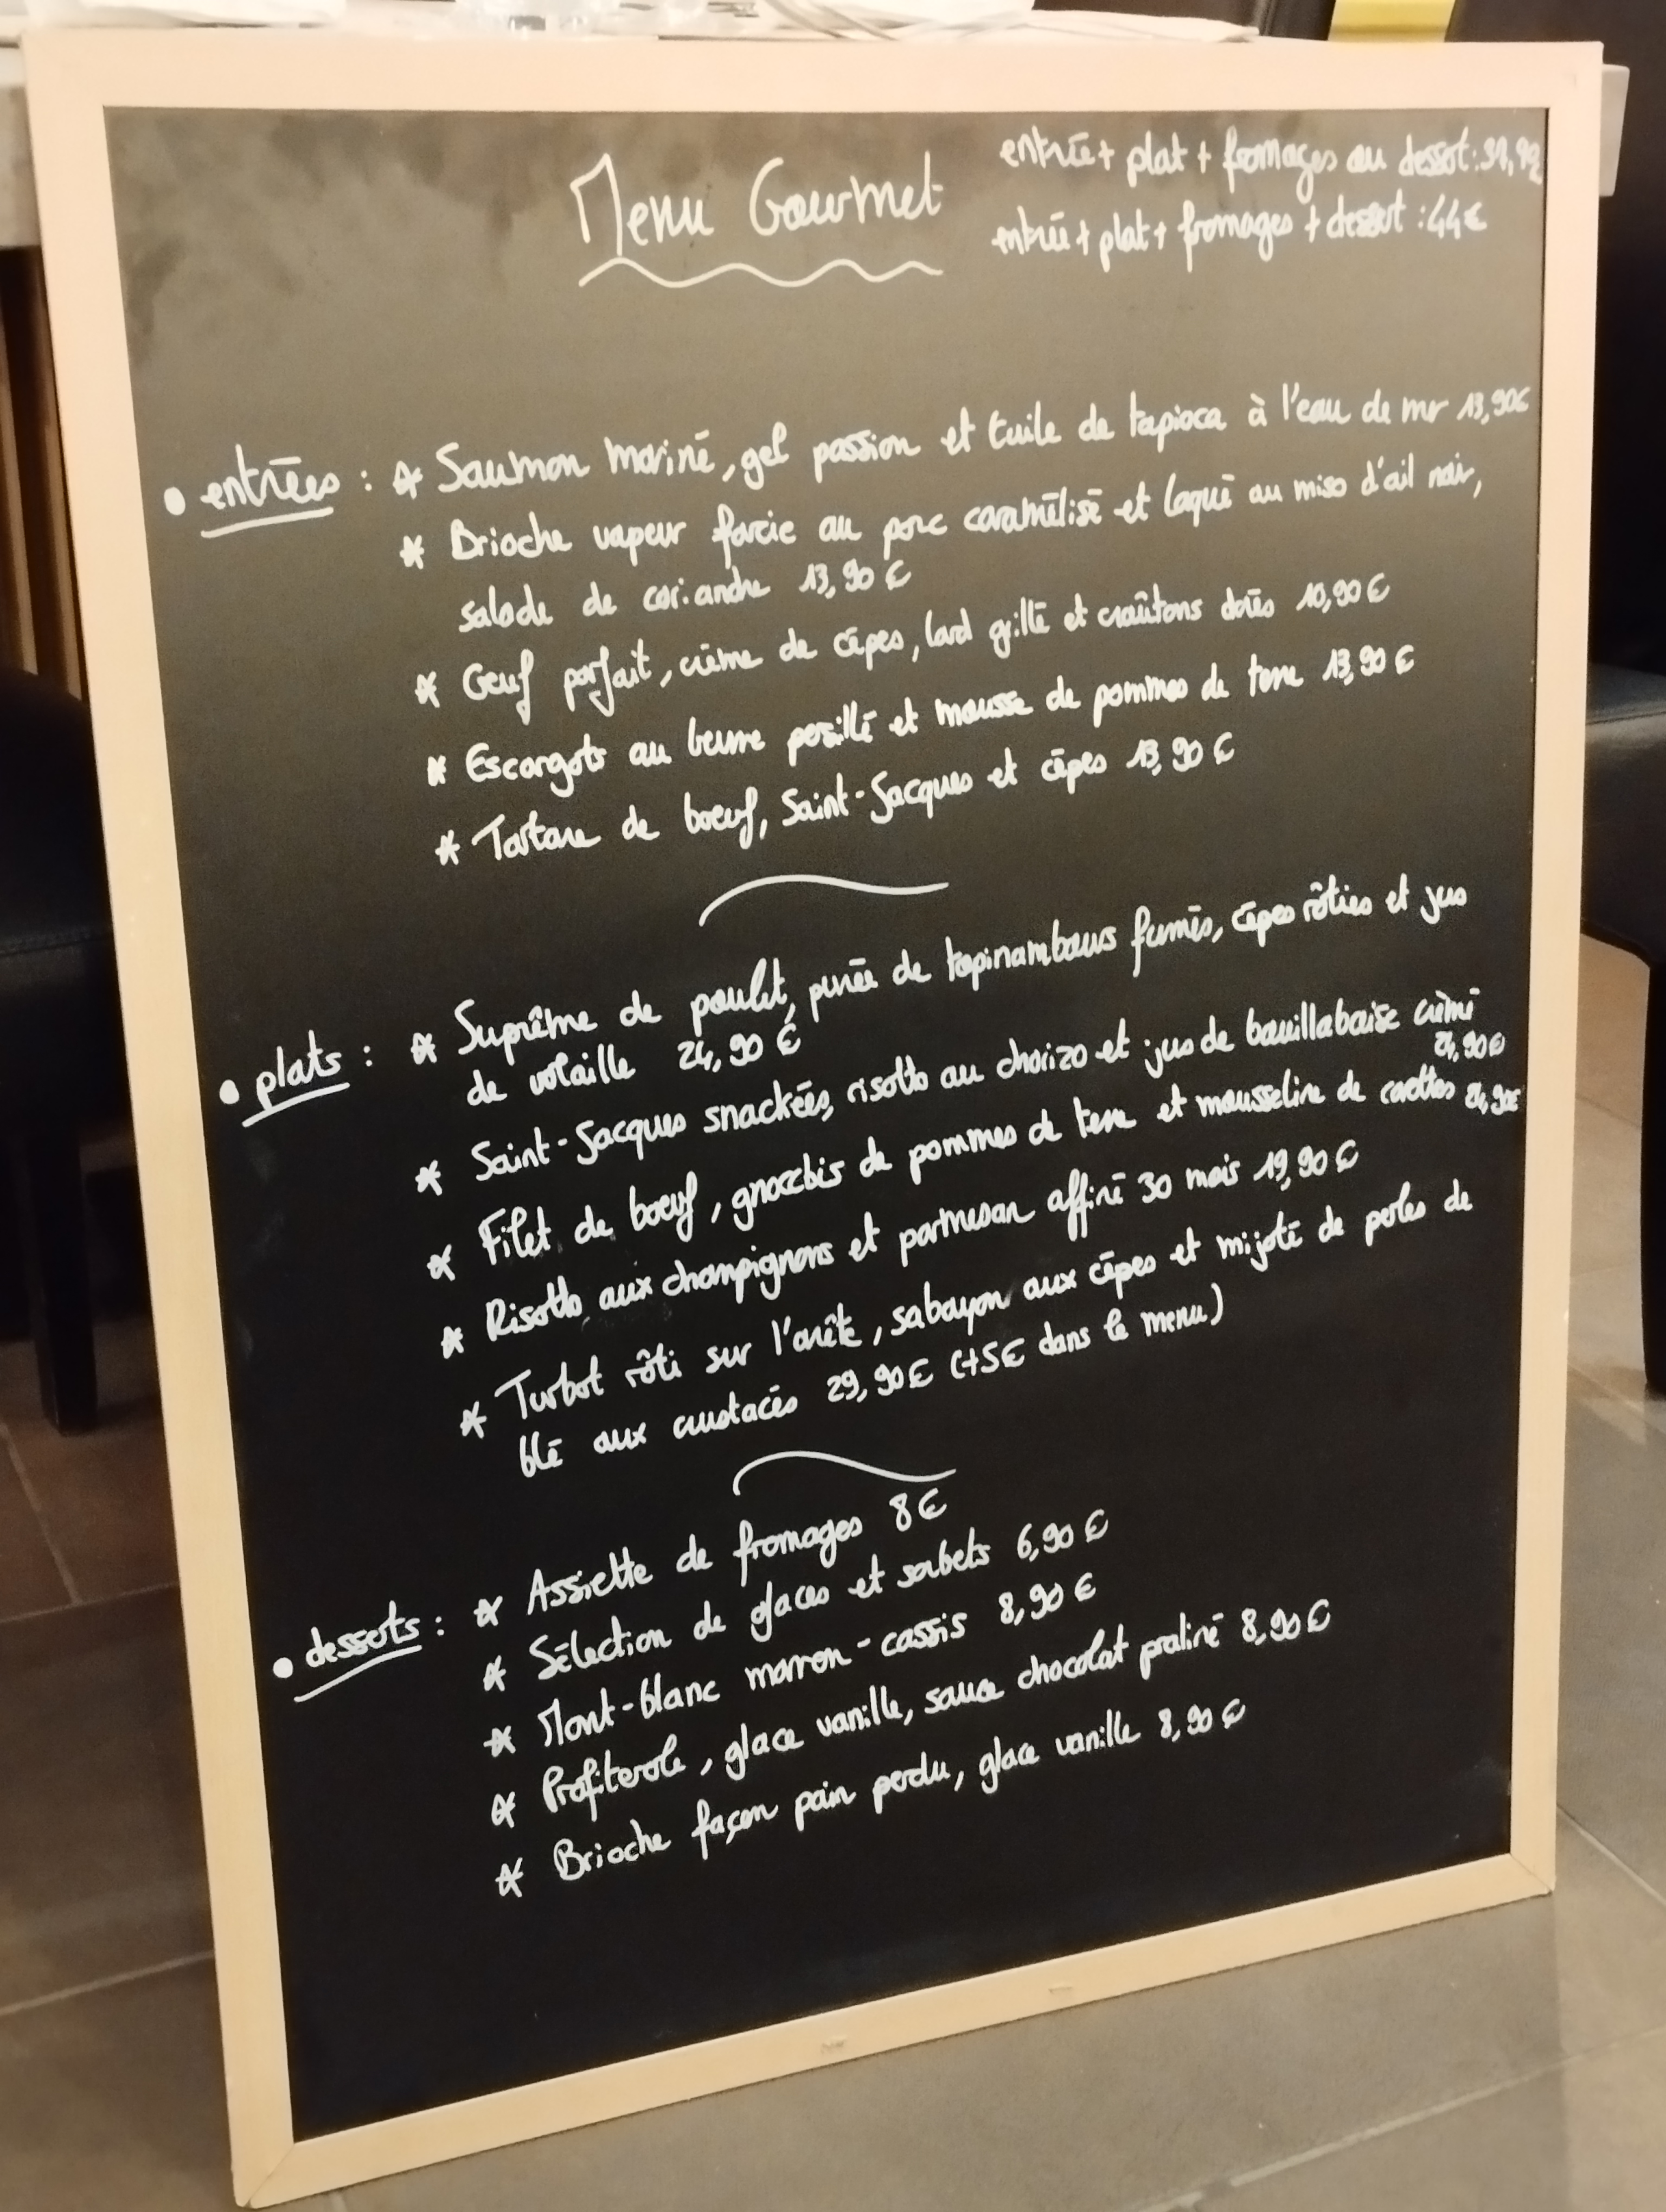 Menu Gourmet
entrée + plat + fromages ou dessert :
entrée + plat + fromages + dessert : 44€
• entrées : * Saumon mariné, gel passion et tuile de tapioca à l'eau de mer 13,90€
* Brioche vapeur farcie au porc caramélisé et laqué au miso d'ail noir,
salade de coriandre 13,90 €
* Oeuf parfait, crème de cèpes, lard grillé et croûtons dorés 10,90 €
* Escargots au beurre persillé et mousse de pommes de terre 13,90 €
* Tartare de boeuf, Saint-Jacques et cèpes 13,90 €
• plats : * Suprême de poulet, purée de topinambours fumés, cèpes rôties et jus
de volaille 24,90 €
* Saint-Jacques snackées, risotto au chorizo et jus de bouillabaise crémé
24,90€
* Filet de boeuf, gnocchis de pommes de terre et mousseline de carottes 24,90€
* Risotto aux champignons et parmesan affiné 30 mois 19,90 €
* Turbot rôti sur l'arête, sabayon aux cèpes et mijoté de perles de
blé aux crustacés 29,90€ (+5€ dans le menu)
• desserts : * Assiette de fromages 8€
* Sélection de glaces et sorbets 6,90 €
* Mont-blanc marron-cassis 8,90 €
* Profiterole, glace vanille, sauce chocolat praliné 8,90 €
* Brioche façon pain perdu, glace vanille 8,90 €